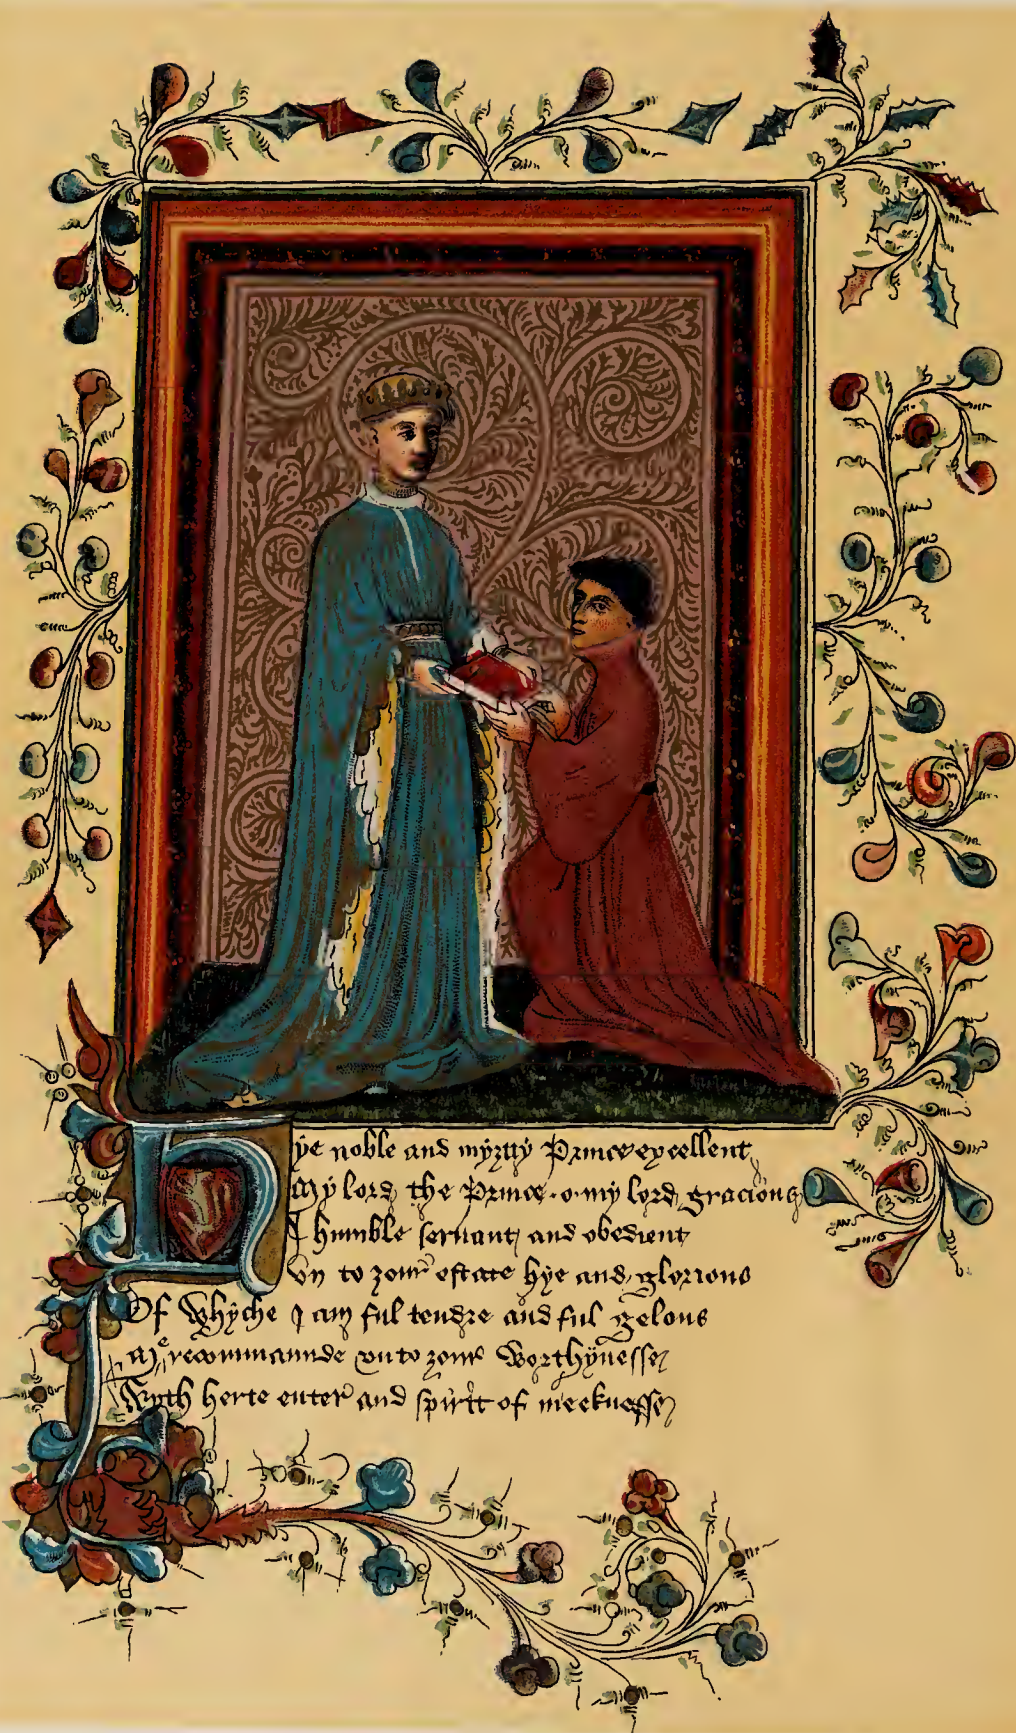 Hye noble and myȝtty Prince excellent
My lord the Prince · o · my lord gracious
I humble seruant and obedient
Vn to ȝour estate hye and glorious
Of whyche I am ful tendre and ful gelous
Me recommaunde vnto ȝour worthynesse
Wyth herte enter and spirit of meeknesse